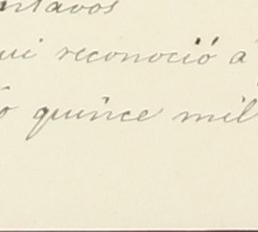 ntavos
ui reconoció á
ó quince mil